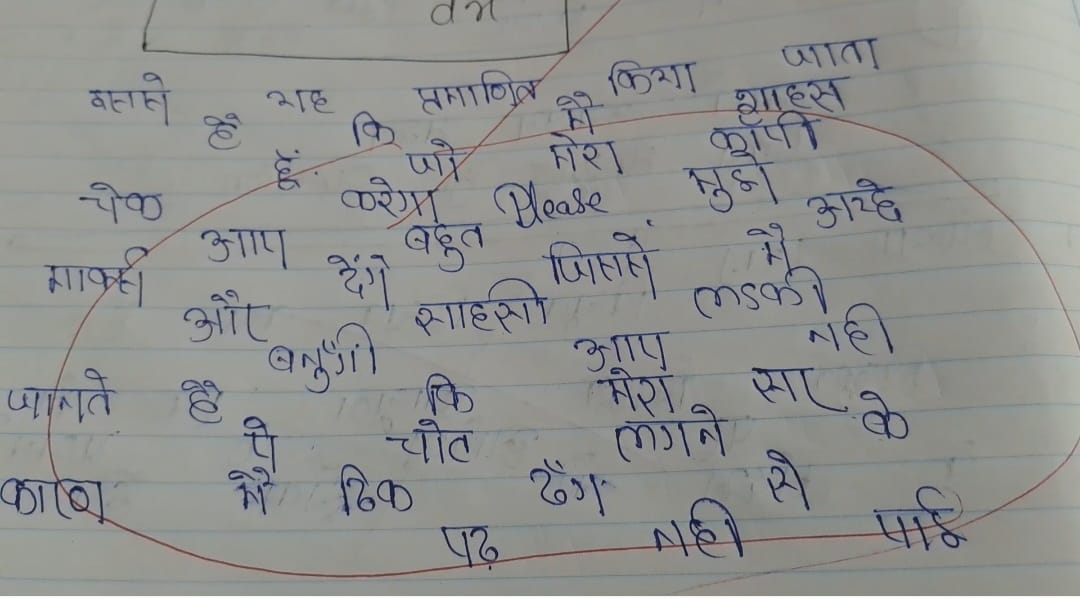 इससे यह प्रमाणित किया जाता
है कि मै शाहस
हूँ. जो मेरा कॉपी
चेक करेगा Please मुझे
आप बहुत अच्छे
मार्क्स देंगे जिससे मै
और साहसी लडकी
बनुगी आप नही
जानते है कि मेरा सर
पे चोट लगने के
कारण मै ठिक ढँग से
पढ़ नही पाई